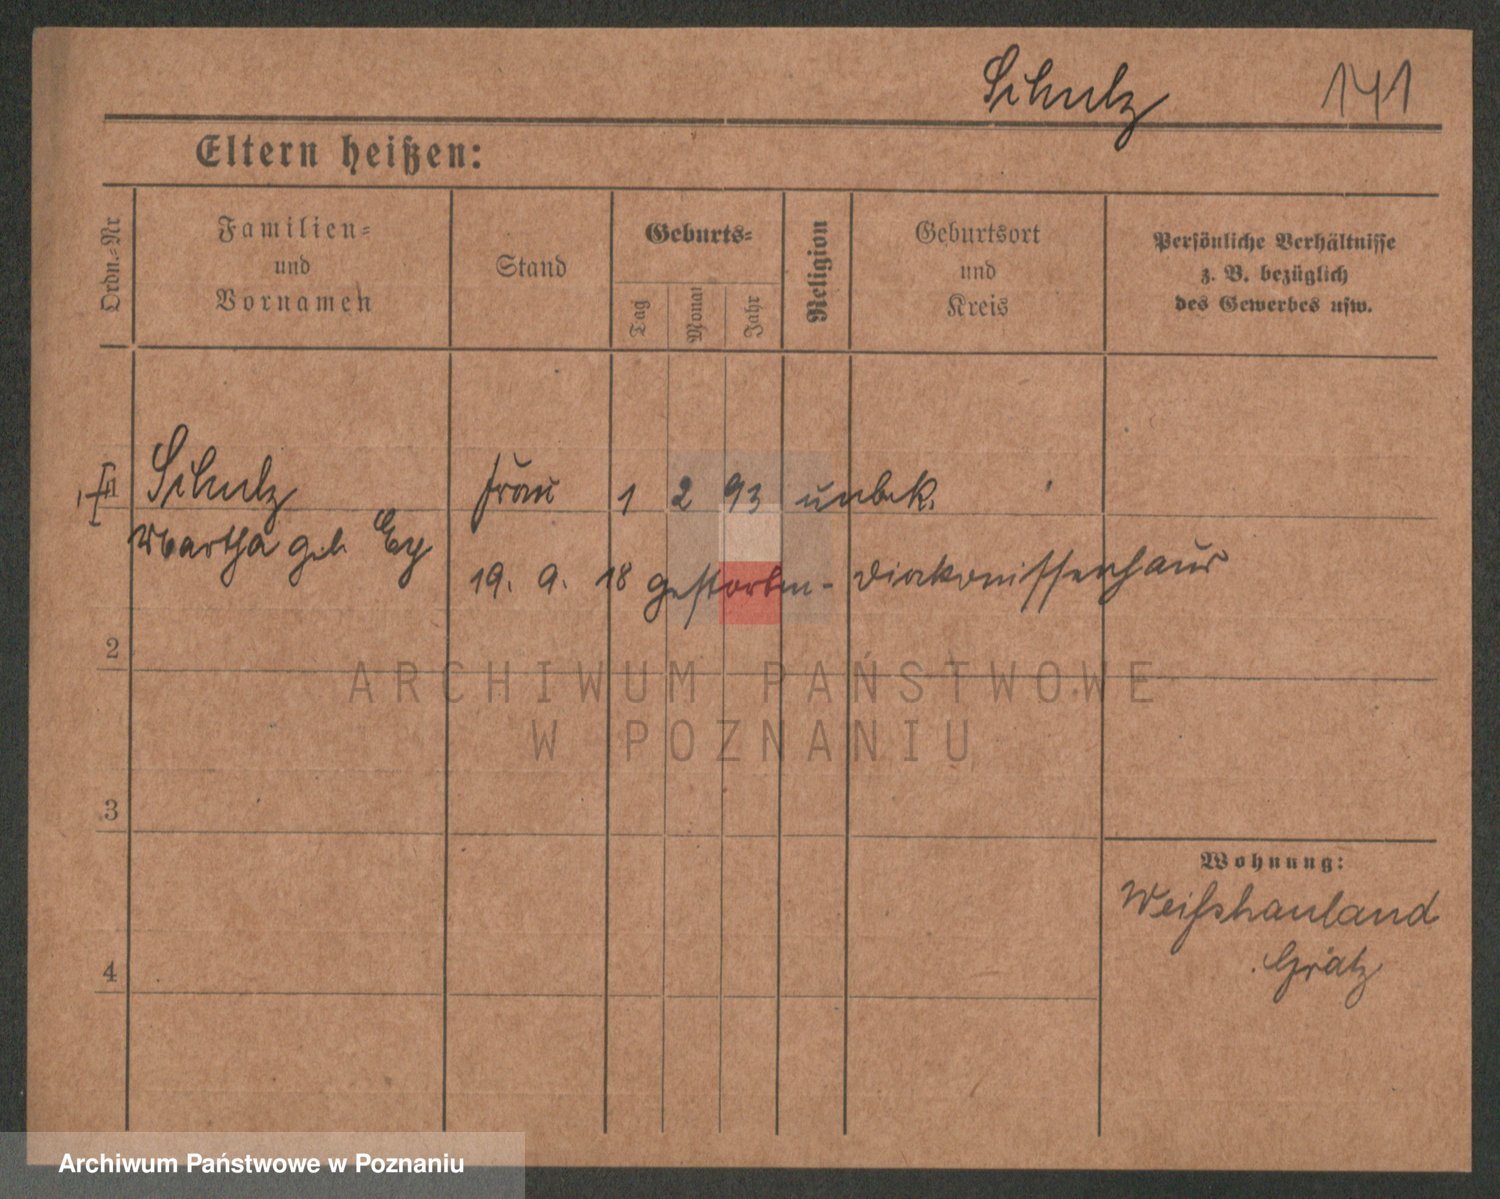 Schulz 141
Eltern heißen:
Ordn.-Nr
Familien-
und
Vornamen
Stand
Geburts-
Tag
Monat
Jahr
Religion
Geburtsort
und
Kreis
Persönliche Verhältnisse
z. B. bezüglich
des Gewerbes usw.
1 Schulz Frau 1 2 93 unbek.
Martha geb. Ey
19. 9. 18 gestorben - Diakonissenhaus
2
3
4
Wohnung:
Weißhauland
Grätz
ARCHIWUM PAŃSTWOWE
W POZNANIU
Archiwum Państwowe w Poznaniu